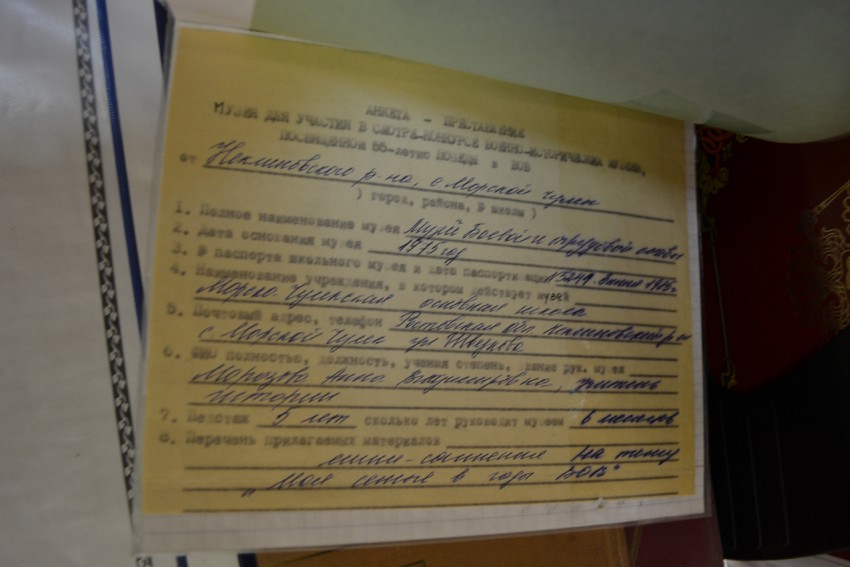 АНКЕТА - ПРЕСТАВЛЕНИЕ
МУЗЕЯ ДЛЯ УЧАСТИЯ В СМОТРЕ-КОНКУРСЕ ВОЕННО-ИСТОРИЧЕСКИХ МУЗЕЕВ,
ПОСВЯЩЕННОМ 55-летию ПОБЕДЫ в ВОВ
от Неклиновского р-на, с Морской Чулек
) город, района, № школы )
1. Полное наименование музея Музей Боевой и трудовой славы
2. Дата основания музея 1975 год
3. № паспорта школьного музея и дата паспорти зации № 5249 1976г
4. Наименование учреждения, в котором действует музей
Морско-Чулекская основная школа
5. Почтовый адрес, телефон Ростовская обл Неклиновский р-он
с. Морской Чулек ул
6. ФИО полностью, должность, ученая степень, звание рук. музея
Морозова Анна Владимировна, учитель
истории
7. Педстаж 5 лет сколько лет руководит музеем 6 месяцев
8. Перечень прилагаемых материалов
мини-сочинения на тему
„Моя семья в годы ВОВ"